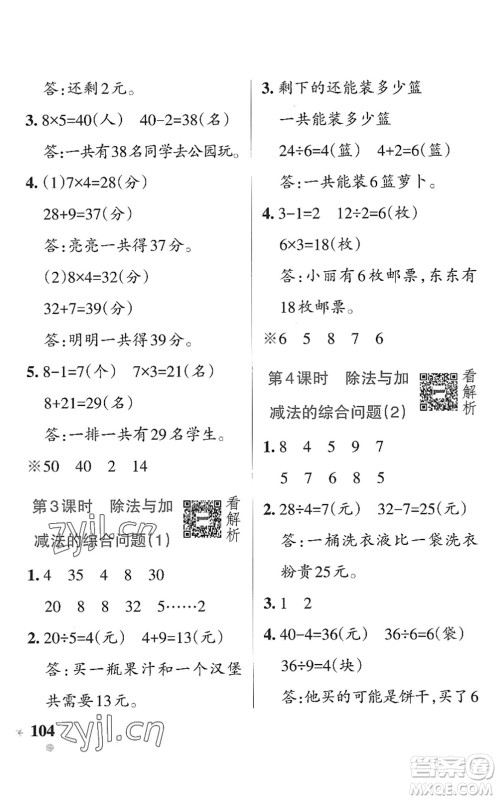 答:还剩2元。
3. 8×5=40(人) 40-2=38(名)
答:一共有38名同学去公园玩。
4. (1)7×4=28(分)
28+9=37(分)
答:亮亮一共得37分。
(2)8×4=32(分)
32+7=39(分)
答:明明一共得39分。
5. 8-1=7(个) 7×3=21(名)
8+21=29(名)
答:一排一共有29名学生。
※50 40 2 14
第3课时 除法与加
减法的综合问题(1)
看解析
1. 4 35 4 8 30
20 8 8 32 5……2
2. 20÷5=4(元) 4+9=13(元)
答:买一瓶果汁和一个汉堡
共需要13元。
104
3. 剩下的还能装多少篮
一共能装多少篮
24÷6=4(篮) 4+2=6(篮)
答:一共能装6篮萝卜。
4. 3-1=2 12÷2=6(枚)
6×3=18(枚)
答:小丽有6枚邮票,东东有
18枚邮票。
※6 5 8 7 6
第4课时 除法与加
减法的综合问题(2)
看解析
1. 4 5 9 8 7
5 7 6 8 5
2. 28÷4=7(元) 32-7=25(元)
答:一桶洗衣液比一袋洗衣
粉贵25元。
3. 1 2
4. 40-4=36(元) 36÷6=6(袋)
36÷9=4(块)
答:他买的可能是饼干,买了6
zyjl.cn
zyjl.cn
答案圈
MXQE.COM